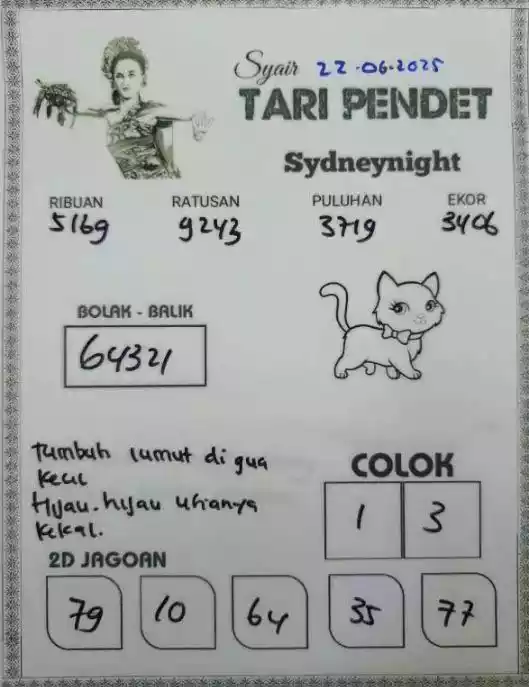 Syair 22-06-2025
TARI PENDET
Sydneynight
RIBUAN RATUSAN PULUHAN EKOR
5169 9243 3719 3406
BOLAK - BALIK
64321
Tumbuh lumut di gua
kecil
Hijau-hijau
kekal.
COLOK
1 3
2D JAGOAN
79 10 64 35 77